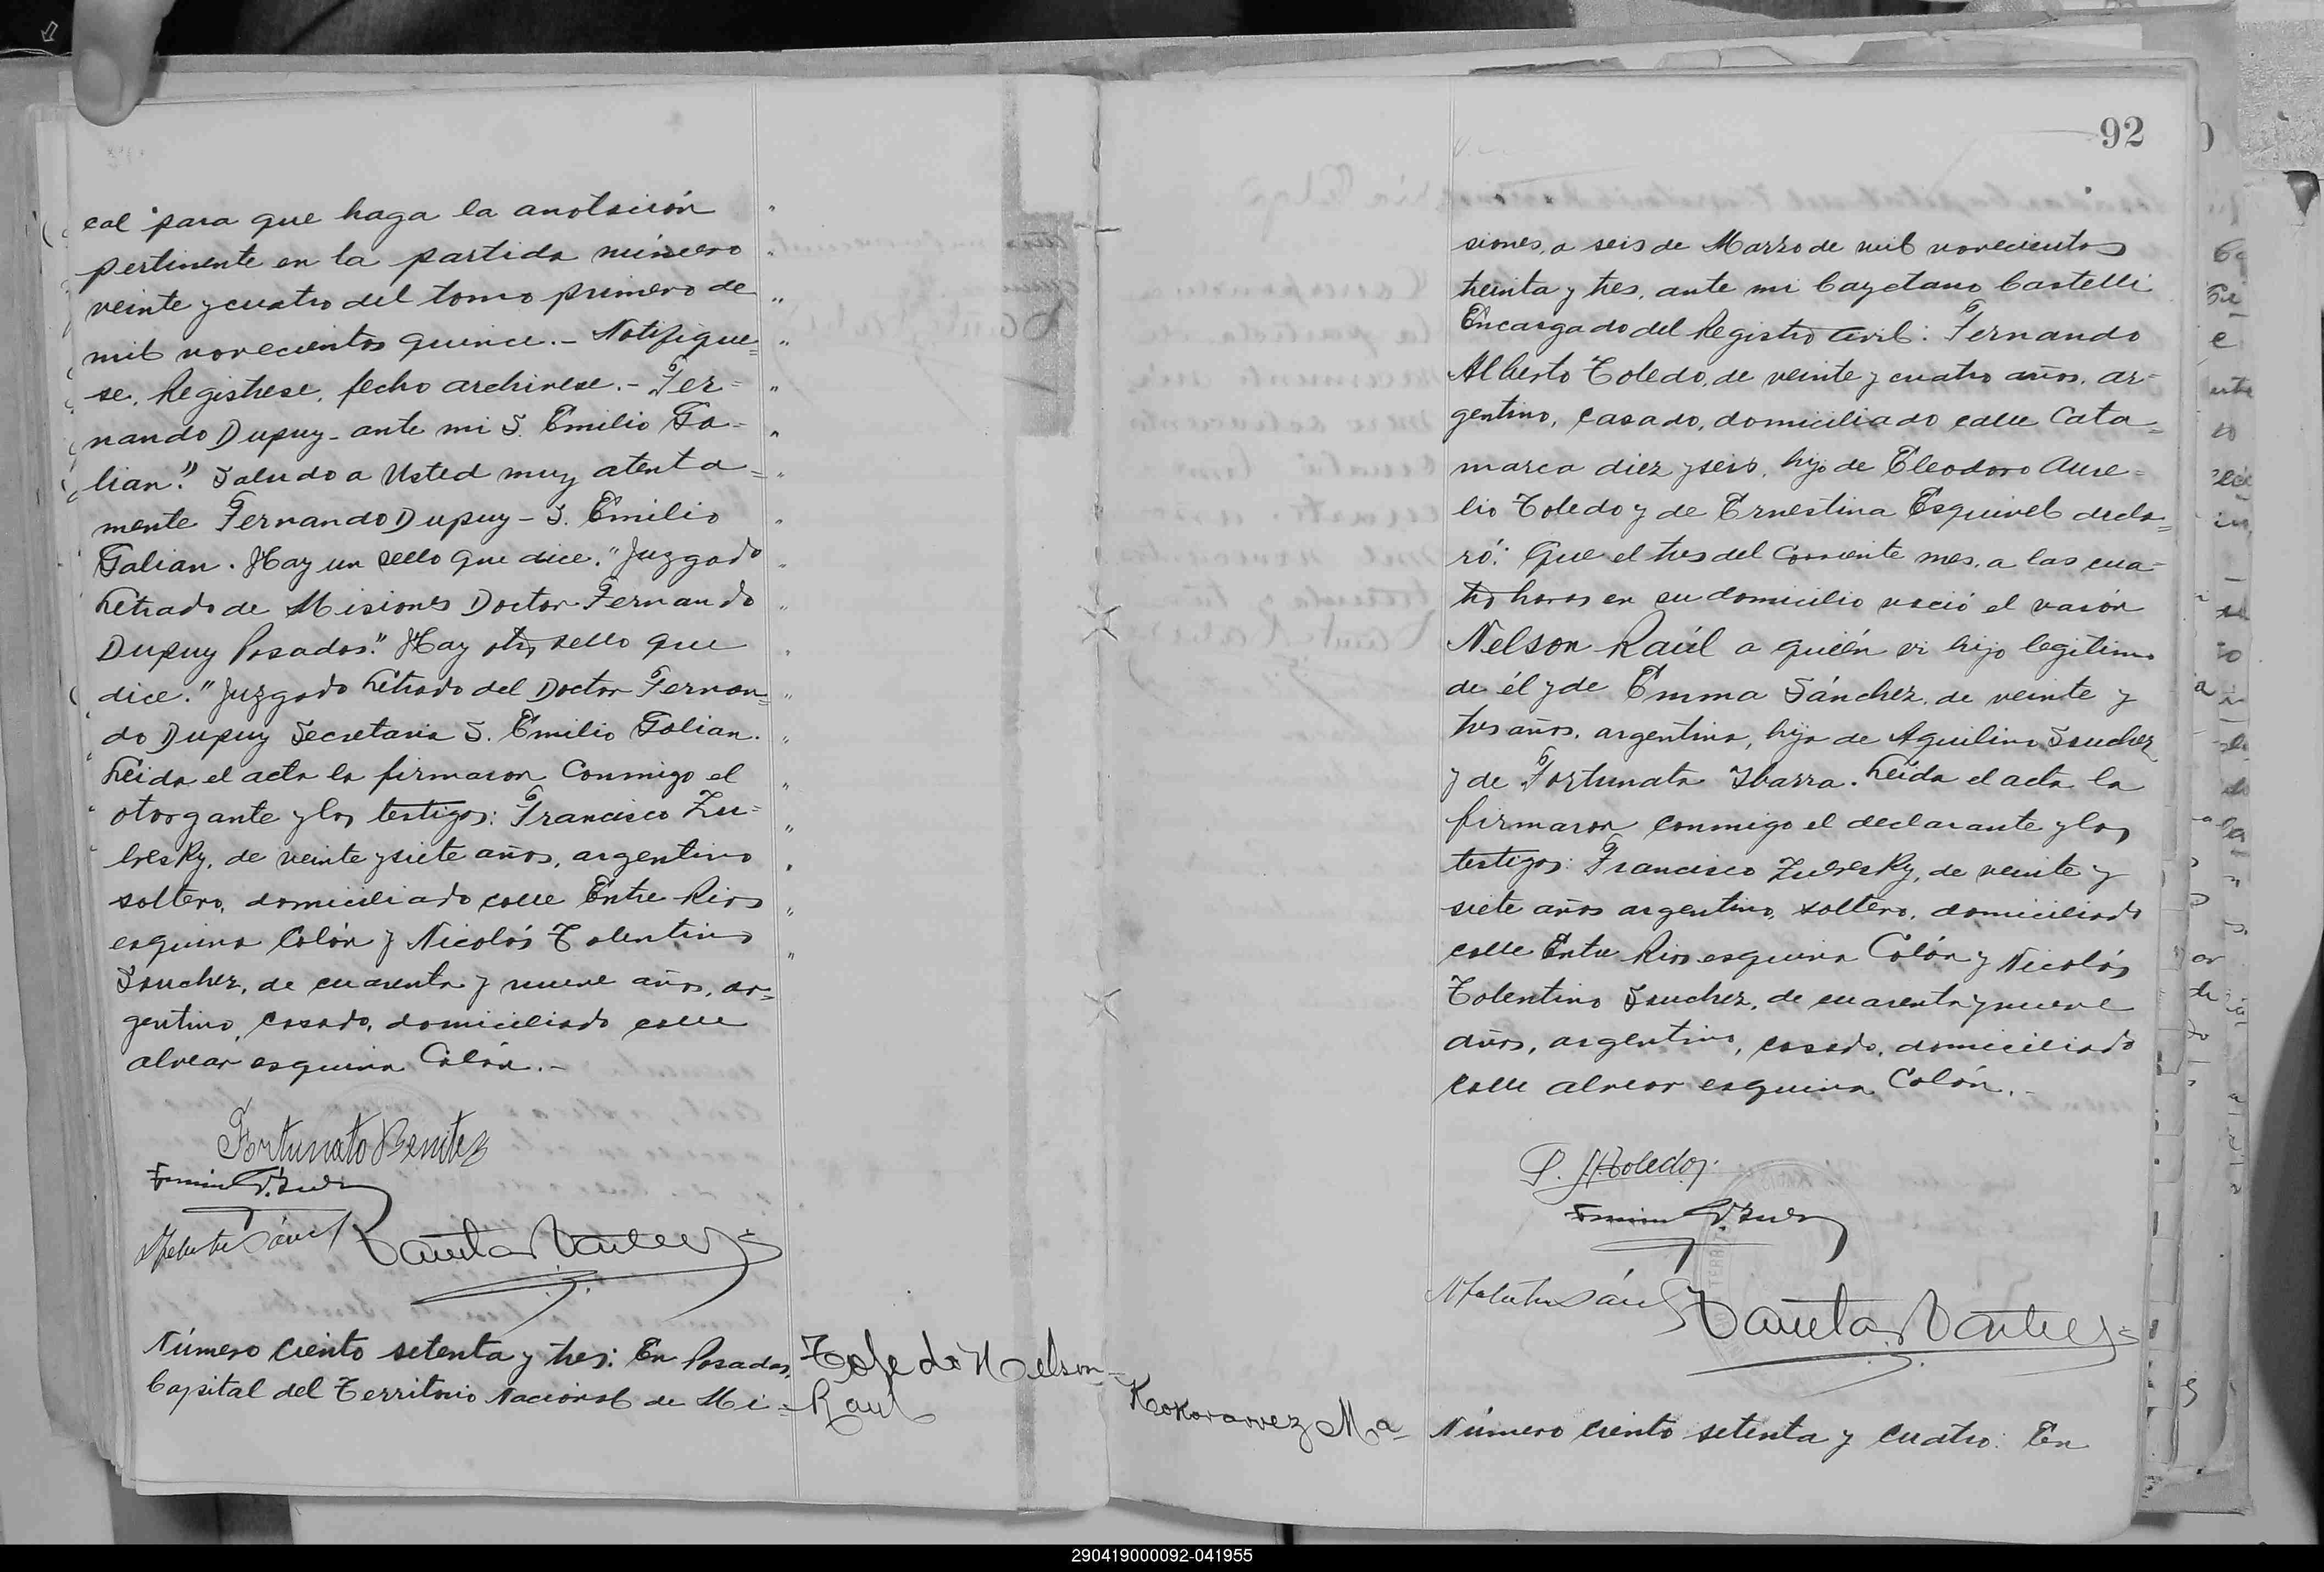 cal para que haga la anotación
pertinente en la partida número
veinte y cuatro del tomo primero de
mil novecientos quince.- Notifique=
se, Registrese, fecho archivese.- Fer=
nando Dupuy - ante mi S. Emilio Ga=
lian." Saludo a Usted muy atenta=
mente Fernando Dupuy - S. Emilio
Galian. Hay un sello que dice. "Juzgado
Letrado de Misiones Doctor Fernando
Dupuy Posadas." Hay otro sello que
dice. "Juzgado Letrado del Doctor Fernan=
do Dupuy Secretaria S. Emilio Galian.
Leida el acta la firmaron conmigo el
otorgante y los testigos: Francisco Zu=
bresky, de veinte y siete años, argentino
soltero, domiciliado calle Entre Rios
esquina Colón y Nicolás Tolentino
Sanchez, de cuarenta y nueve años, ar=
gentino, casado, domiciliado calle
alvear esquina Colón.-
Fortunato Benitez
Número ciento setenta y tres: En Posadas,
Capital del Territorio Nacional de Mi=
Toledo Nelson
Raul
92
siones, a seis de Marzo de mil novecientos
treinta y tres, ante mi Cayetano Castelli
Encargado del Registro Civil: Fernando
Alberto Toledo, de veinte y cuatro años, ar=
gentino, casado, domiciliado calle Cata=
marca diez y seis, hijo de Eleodoro Aure=
lio Toledo y de Ernestina Esquivel decla=
ró: Que el tres del corriente mes, a las cua=
tro horas en su domicilio nació el varón
Nelson Raúl a quién vi hijo legitimo
de él y de Emma Sánchez, de veinte y
tres años, argentina, hija de Aquilino Sanchez
y de Fortunata Ybarra. Leída el acta la
firmaron conmigo el declarante y los
testigos: Francisco Zubresky, de veinte y
siete años argentino, soltero, domiciliado
calle Entre Rios esquina Colón y Nicolás
Tolentino Sanchez, de cuarenta y nueve
años, argentino, casado, domiciliado
calle alvear esquina Colón.-
Toledo
Ma=
Número ciento setenta y cuatro: En
290419000092-041955